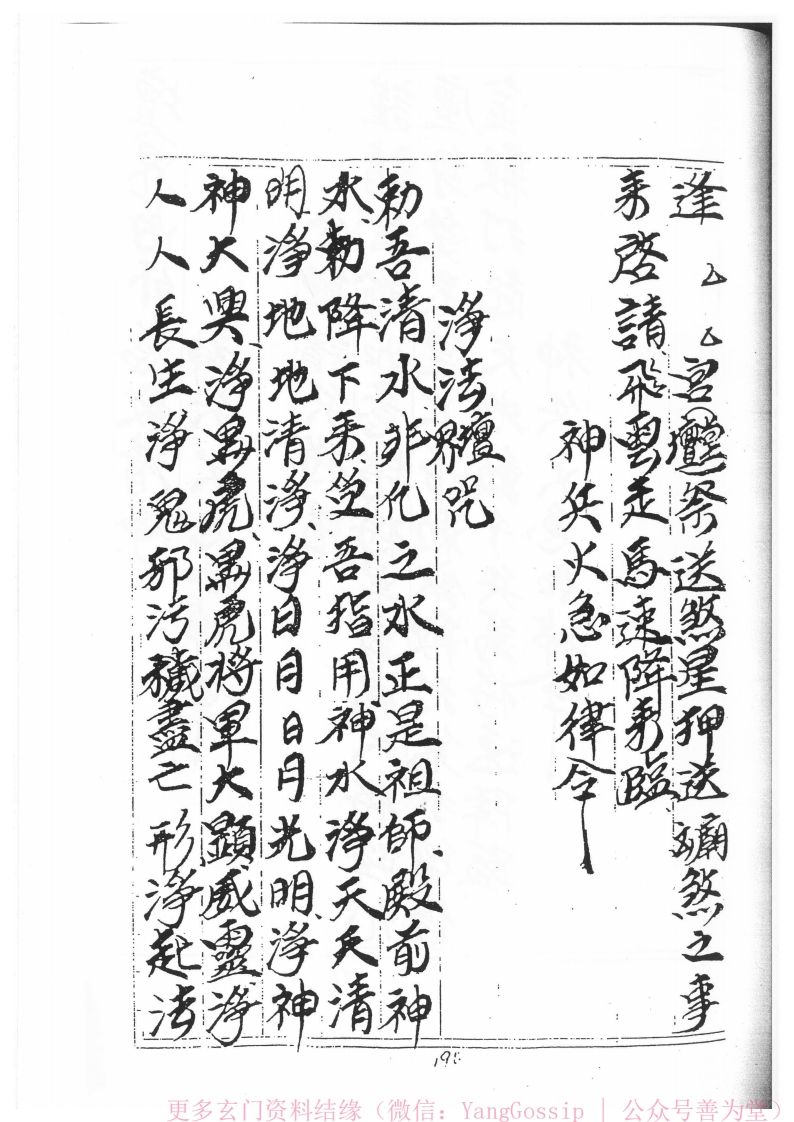 逢厶厶宮壇祭送煞星押送煞之事
來啓請飛雲走馬速降來臨
神兵火急如律令
淨法界壇咒
勅吾清水非凡之水正是祖師殿前神
水勅降下來受吾指用神水淨天天清
明淨地地清淨淨日月日月光明淨神
神大興淨黑虎黑虎將軍大顯威靈淨
人人長生淨鬼邪污穢盡亡形淨起法
198
更多玄门资料结缘（微信：YangGossip | 公众号善为堂）